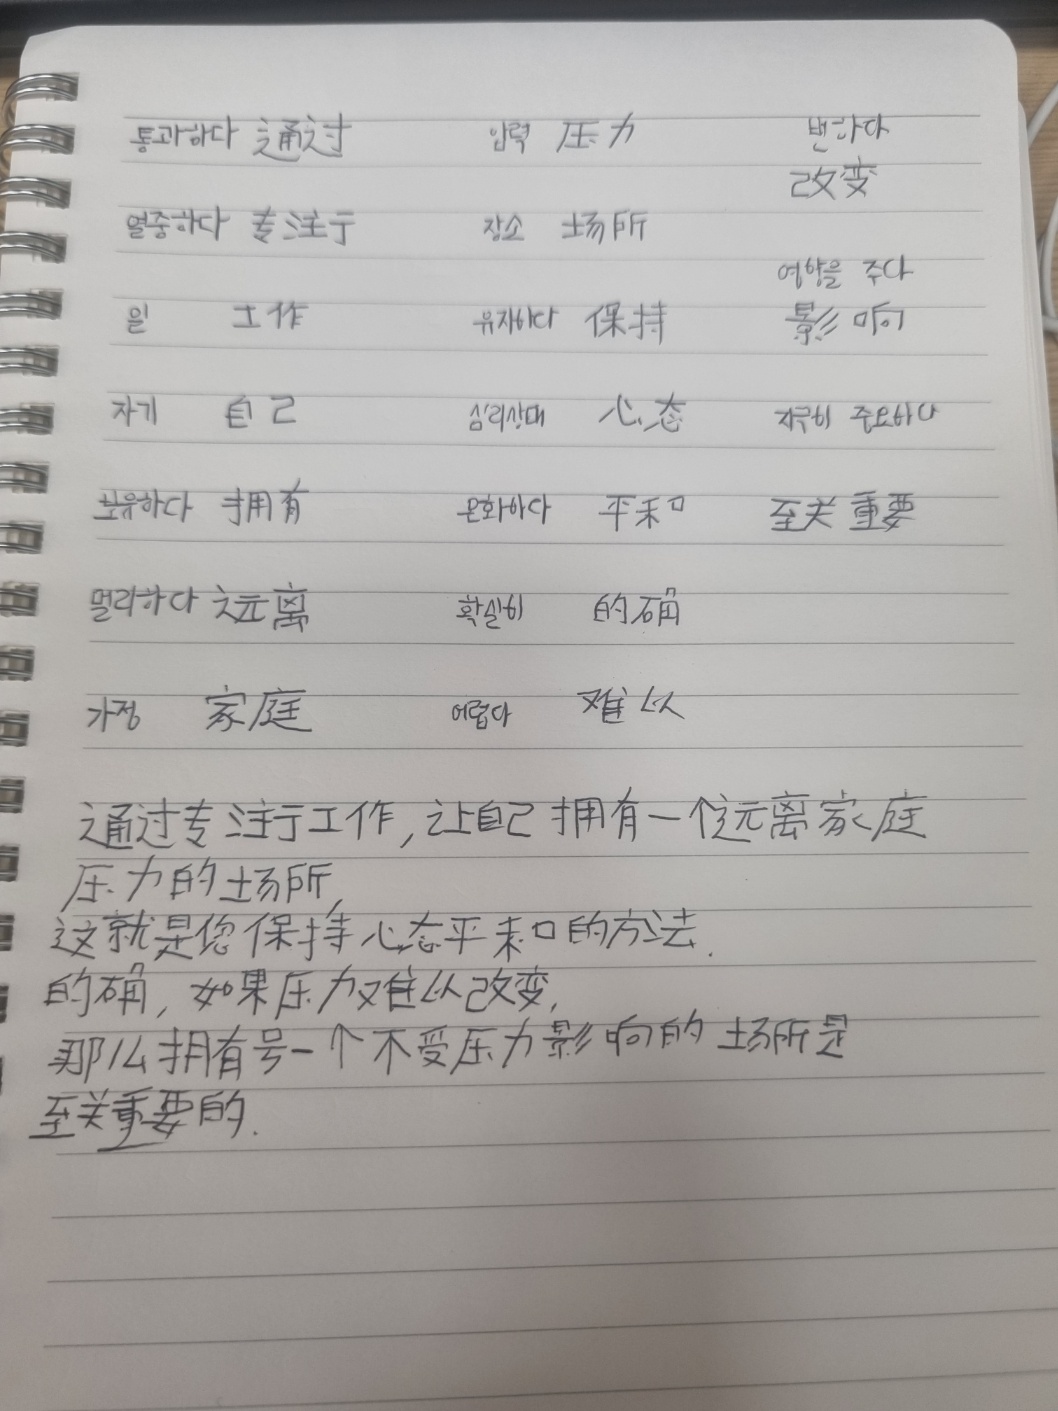 통과하다 通过 압력 压力 변하다
改变
열중하다 专注于 장소 场所
영향을 주다
일 工作 유지하다 保持 影响
자기 自己 심리상태 心态 지극히 중요하다
보유하다 拥有 온화하다 平和 至关重要
멀리하다 远离 확실히 的确
가정 家庭 어렵다 难以
通过专注于工作,让自己拥有一个远离家庭
压力的场所,
这就是您保持心态平和的方法.
的确,如果压力难以改变,
那么拥有号一个不受压力影响的场所是
至关重要的.